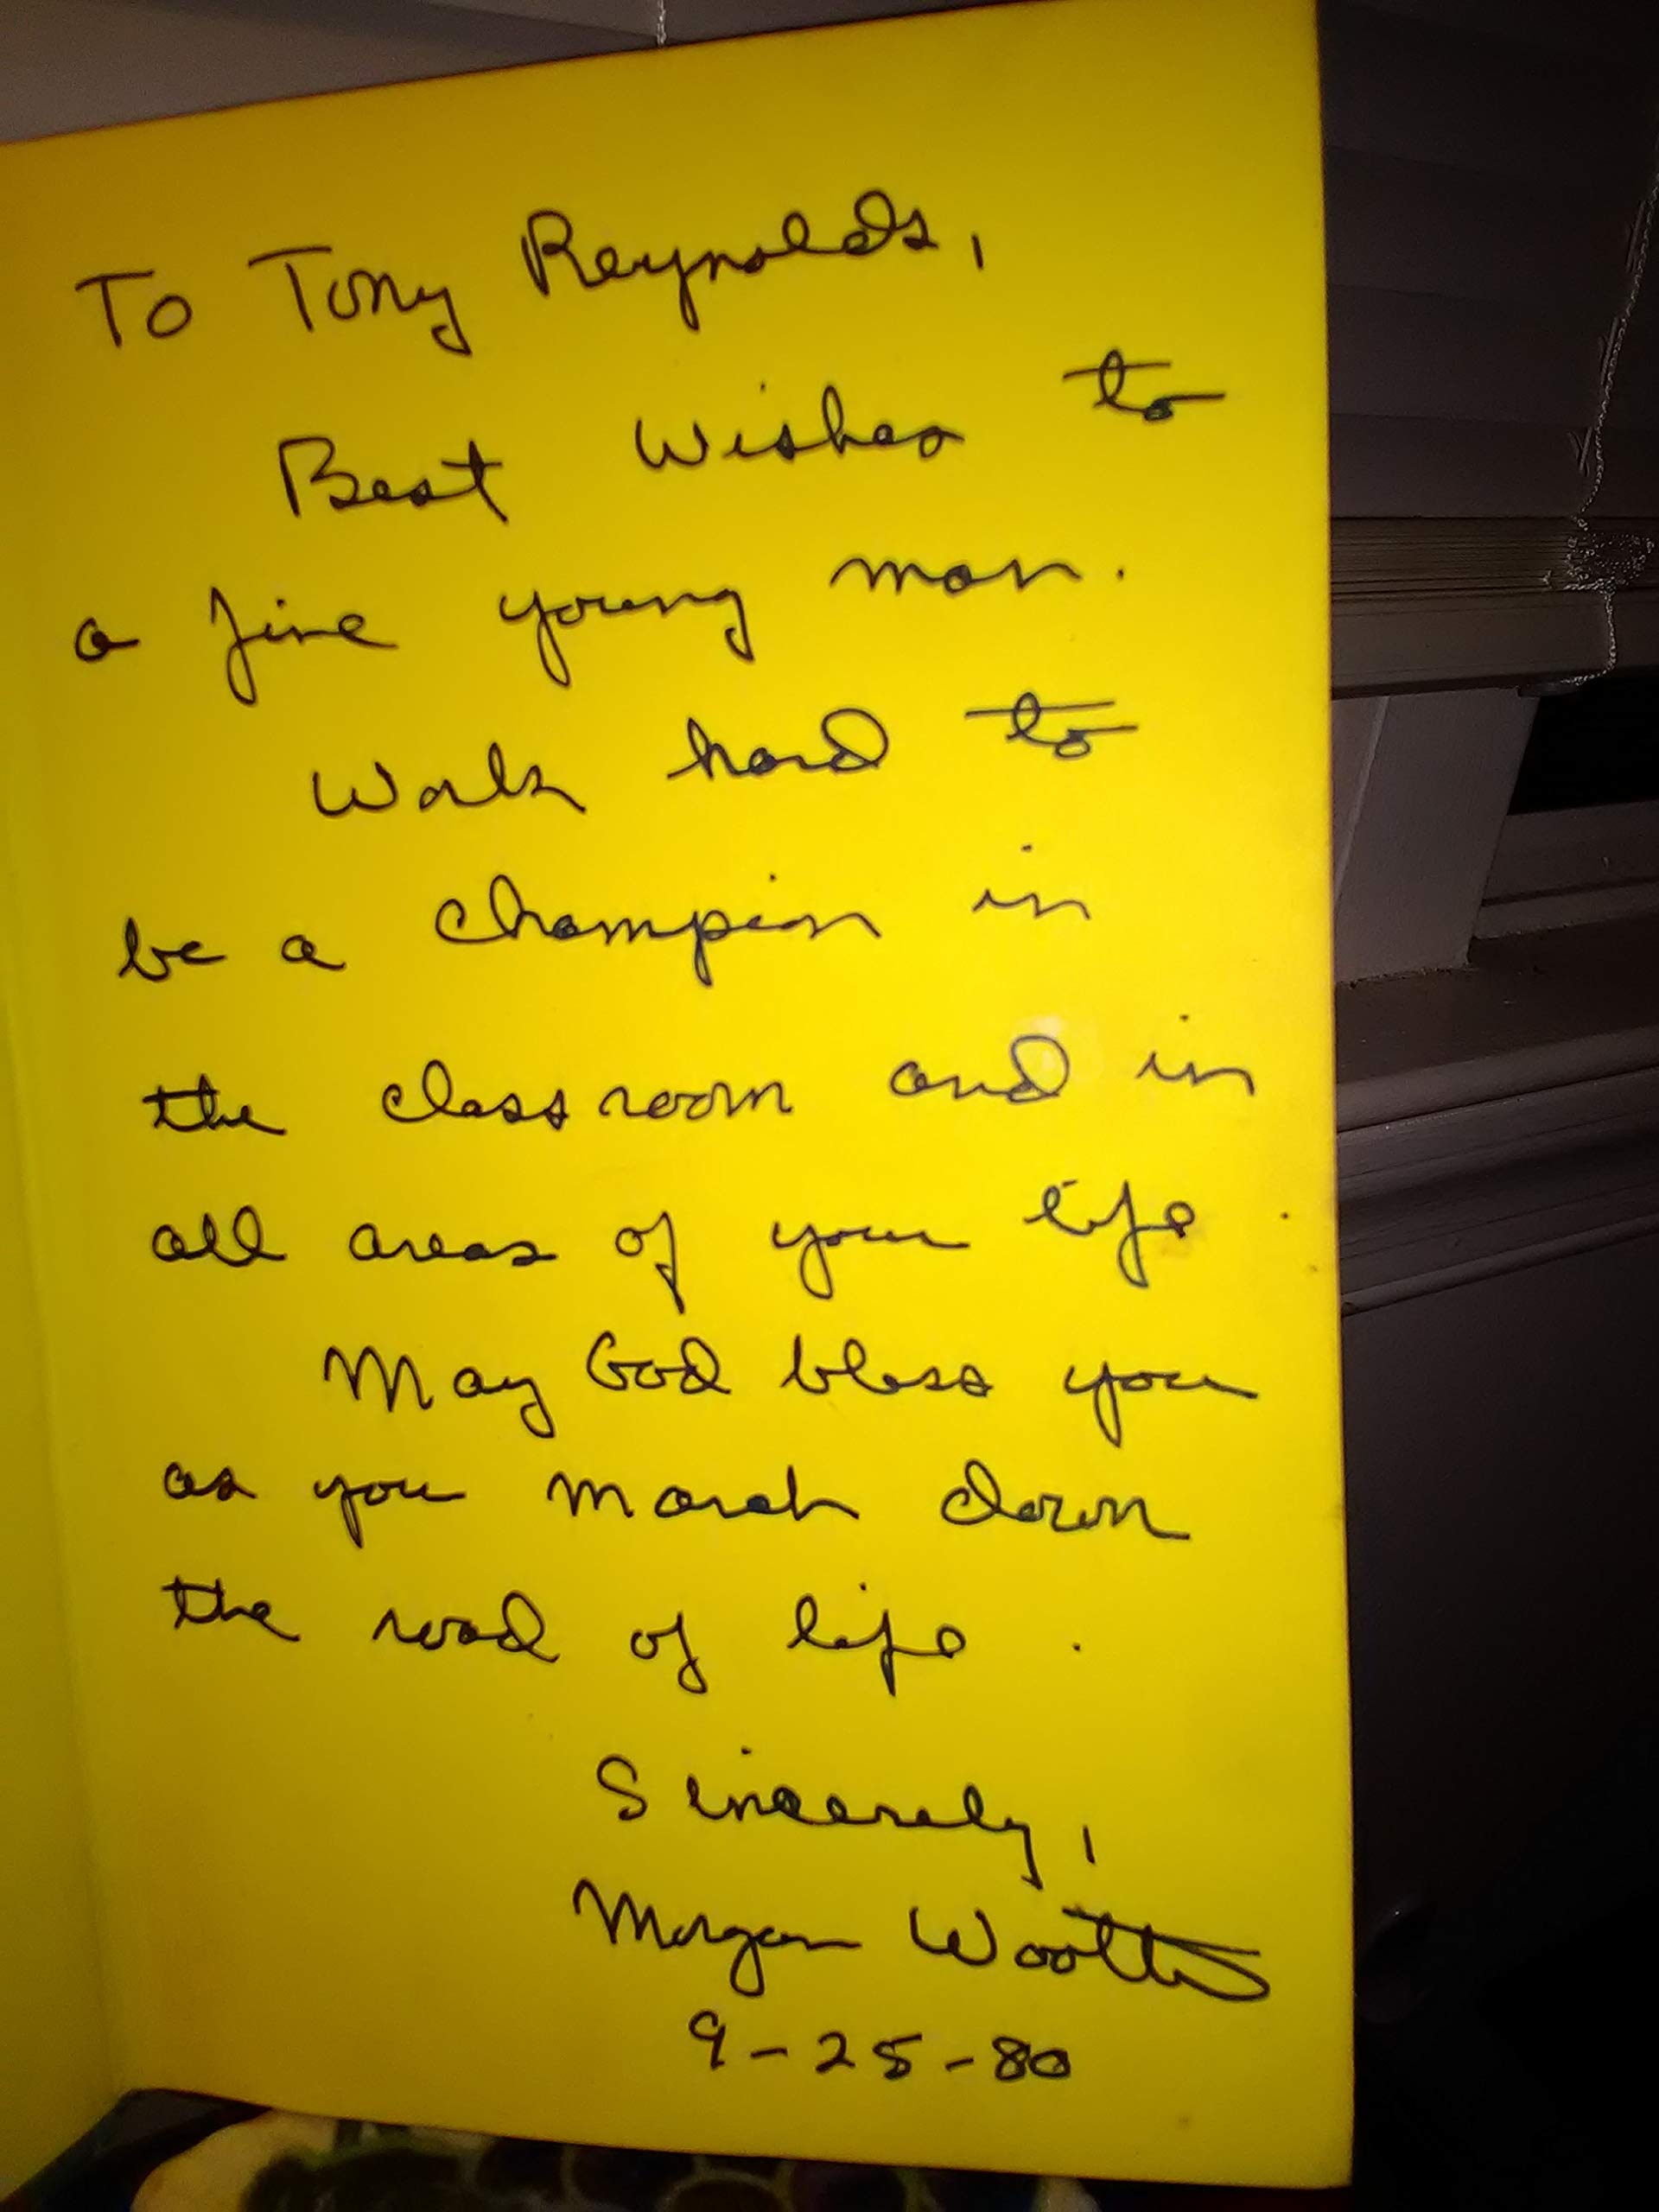 To Tony Reynolds,
Best Wishes to
a fine young man.
Work hard to
be a champion in
the classroom and in
all areas of your life.
May God bless you
as you march down
the road of life.
Sincerely,
Morgan Wootten
9-25-80